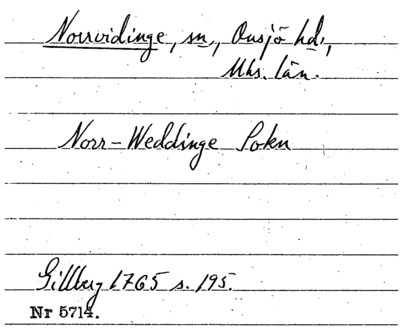 Norrvidinge, sn., Onsjö hd.,
Mhs. län.
Norr-Weddinge Sokn
Gillberg 1765 s. 195.
Nr 5714.